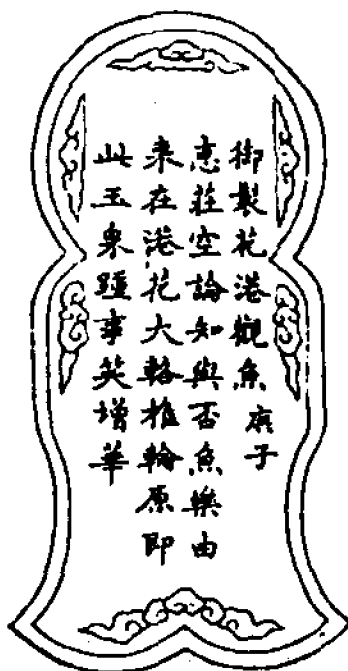 御製花港觀魚 庚子
惠莊空論知與否魚樂由
来在港花大輅椎輪原即
此玉泉踵事笑增華